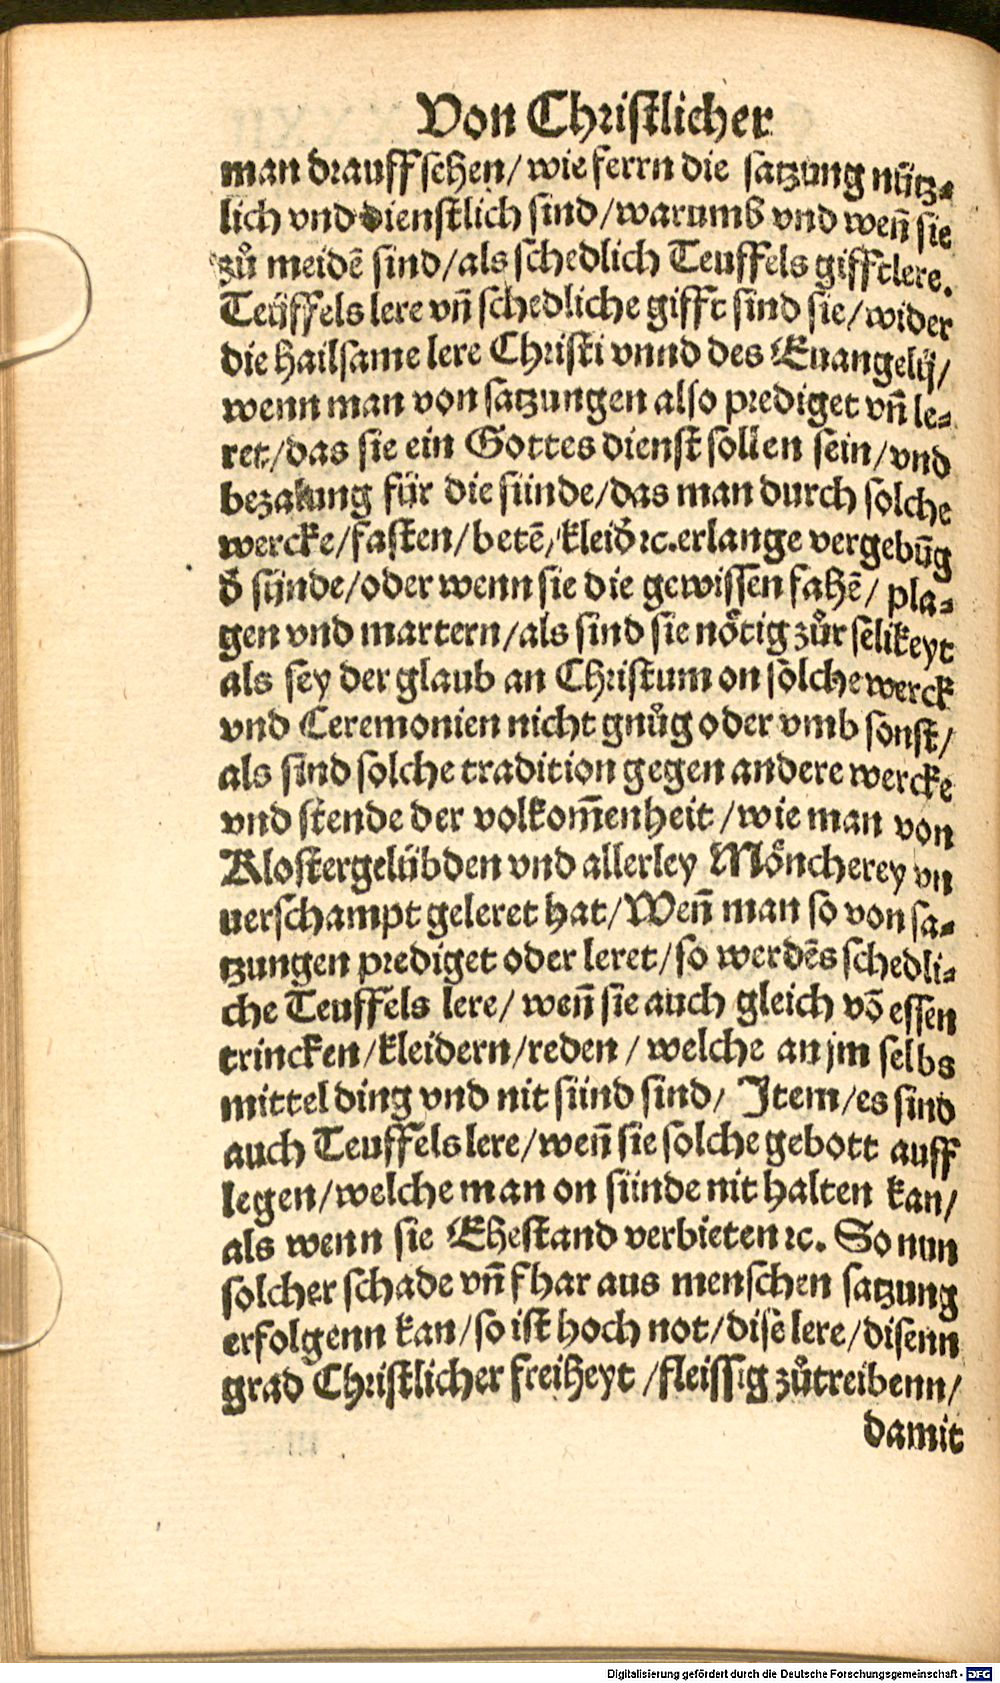 Von Christlicher
man drauff sehen/ wie ferrn die satzung nütz-
lich vnd dienstlich sind/warumb vnd weñ sie
zů meidē sind/als schedlich Teuffels gifftlere.
Teüffels lere vñ schedliche gifft sind sie/wider
die hailsame lere Christi vnnd des Euangelij/
wenn man von satzungen also prediget vñ le-
ret/das sie ein Gottes dienst sollen sein/vnd
bezalung für die sünde/das man durch solche
wercke/fasten/betē/kleid' ꝛc.erlange vergebūg
d' sünde/oder wenn sie die gewissen fahē/ pla-
gen vnd martern/als sind sie nötig zůr selikeyt
als sey der glaub an Christum on solche werck
vnd Ceremonien nicht gnůg oder vmb sonst/
als sind solche tradition gegen andere wercke
vnd stende der volkom̄enheit/wie man von
Klostergelübden vnd allerley Möncherey vn
uerschampt geleret hat/Weñ man so von sa-
tzungen prediget oder leret/so werdēs schedli-
che Teuffels lere/ weñ sie auch gleich vō essen
trincken/kleidern/reden/ welche an jm selbs
mittel ding vnd nit sünd sind/ Item/es sind
auch Teuffels lere/weñ sie solche gebott auff
legen/welche man on sünde nit halten kan/
als wenn sie Ehestand verbieten ꝛc. So nun
solcher schade vñ fhar aus menschen satzung
erfolgenn kan/so ist hoch not/dise lere/disenn
grad Christlicher freiheyt /fleissig zůtreibenn/
damit
Digitalisierung gefördert durch die Deutsche Forschungsgemeinschaft - DFG